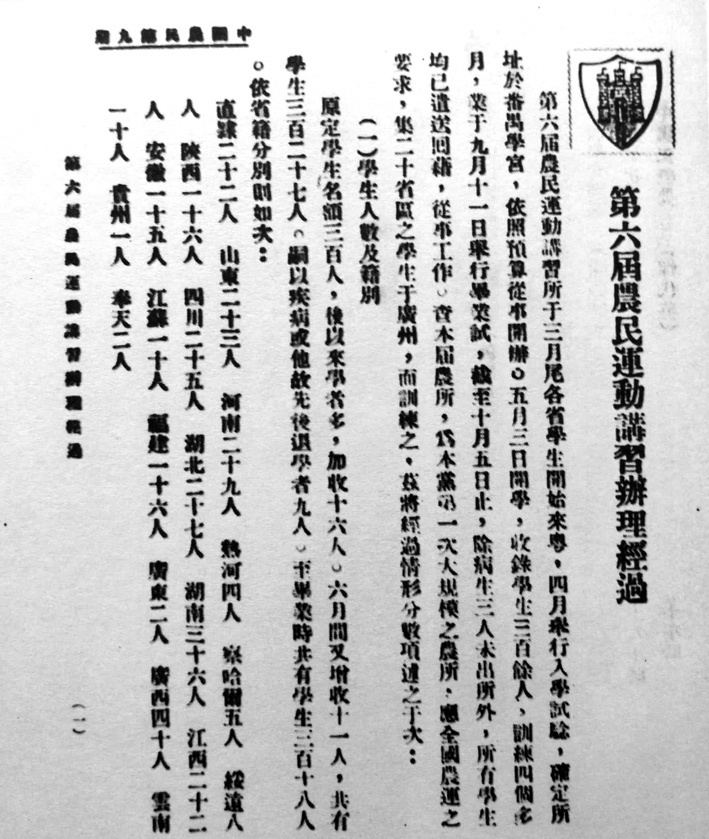 中國農民第九期
第六屆農民運動講習辦理經過
第六屆農民運動講習所于三月尾各省學生開始來粵，四月舉行入學試驗，確定所
址於番禺學宮，依照預算從事開辦。五月三日開學，收錄學生三百餘人，訓練四個多
月，業于九月十一日舉行畢業試，截至十月五日止，除病生三人未出所外，所有學生
均已遣送回藉，從事工作。查本屆農所，爲本黨第一次大規模之農所，應全國農運之
要求，集二十省區之學生于廣州，而訓練之，茲將經過情形分數項述之于次：
（一）學生人數及籍別
原定學生名額三百人，後以來學者多，加收十六人。六月間又增收十一人，共有
學生三百二十七人。嗣以疾病或他故先後退學者九人。至畢業時共有學生三百十八人
。依省籍分別則如次：
直隸二十二人　山東二十三人　河南二十九人　熱河四人　察哈爾五人　綏遠八
人　陝西一十六人　四川二十五人　湖北二十七人　湖南三十六人　江西二十二
人　安徽一十五人　江蘇一十人　福建一十六人　廣東二人　廣西四十人　雲南
一十人　貴州一人　奉天二人
第六屆農民運動講習辦理經過
（一）